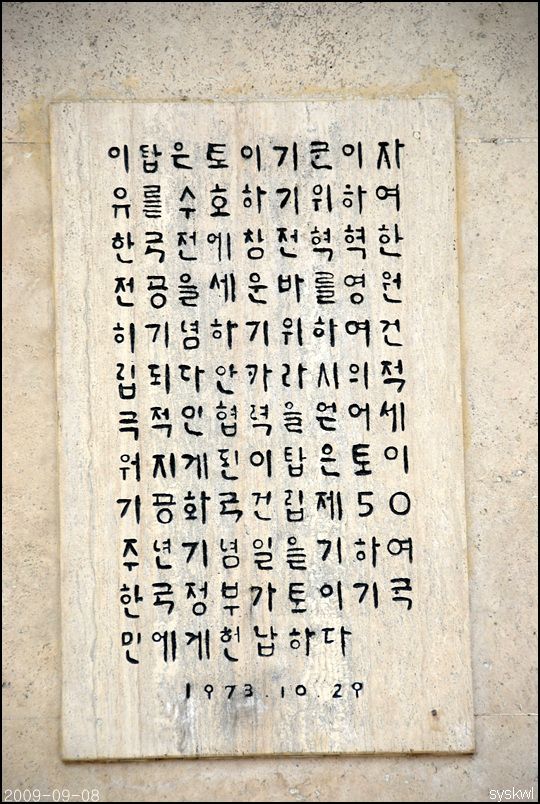 이탑은토이기군이자
유를수호하기위하여
한국전에참전혁혁한
전공을세운바를영원
히기념하기위하여건
립되다안카라시의적
극적인협력을얻어세
워지게된이탑은토이
기공화국건립제50
주년기념일을기하여
한국정부가토이기국
민에게헌납하다
1973.10.29
2009-09-08
syskwl